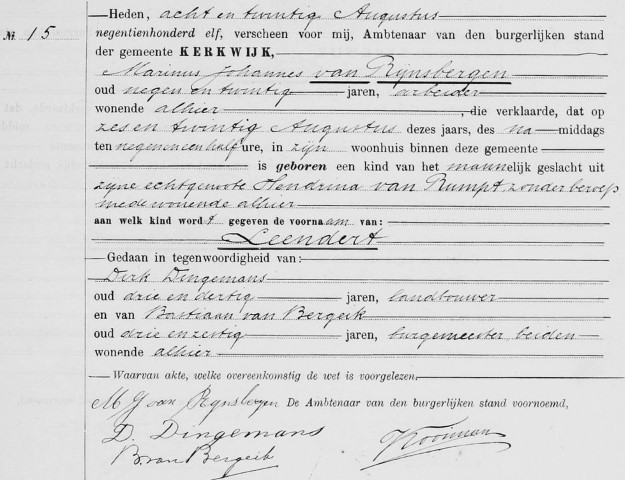 Nº 15
Heden, acht en twintig Augustus
negentienhonderd elf, verscheen voor mij, Ambtenaar van den burgerlijken stand
der gemeente KERKWIJK,
Marinus Johannes van Rijnsbergen
oud negen en twintig jaren, arbeider
wonende alhier, die verklaarde, dat op
zes en twintig Augustus dezes jaars, des na-middags
ten negen en een half ure, in zijn woonhuis binnen deze gemeente
is geboren een kind van het mannelijk geslacht uit
zijne echtgenote Hendrina van Rumpt, zonder beroep
mede wonende alhier
aan welk kind wordt gegeven de voornaam van:
Leendert
Gedaan in tegenwoordigheid van:
Dirk Dingemans
oud drie en dertig jaren, landbouwer
en van Bastiaan van Bergeik
oud drie en zestig jaren, burgemeester beiden
wonende alhier
Waarvan akte, welke overeenkomstig de wet is voorgelezen.
M J van Rijnsbergen De Ambtenaar van den burgerlijken stand voornoemd,
D. Dingemans Kooiman
B. van Bergeik